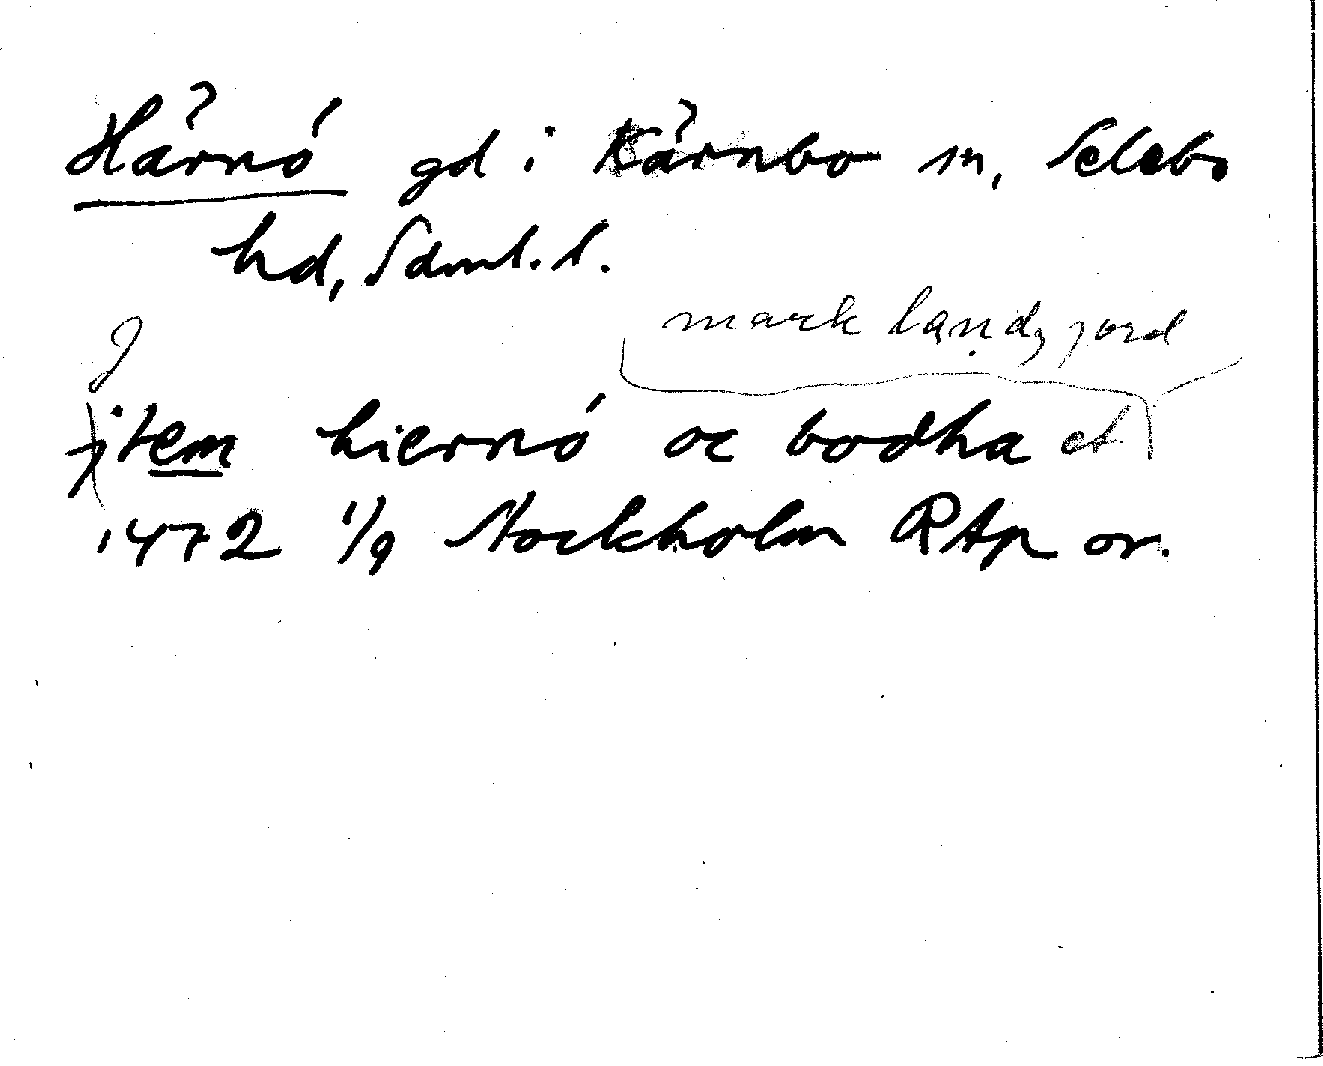 Härnö gd i Kärnbo sn, Selebo
hd, Södml. l.
mark landz jord
J
jtem hiernö oc bodha et
1472 1/9 Stockholm RAp or.